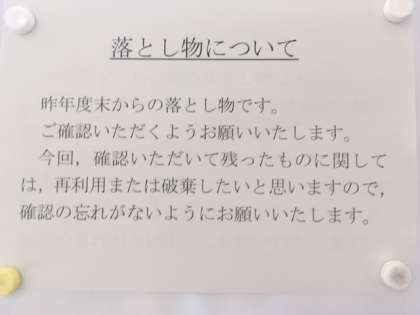 落とし物について
昨年度末からの落とし物です。
ご確認いただくようお願いいたします。
今回，確認いただいて残ったものに関して
は，再利用または破棄したいと思いますので，
確認の忘れがないようにお願いいたします。